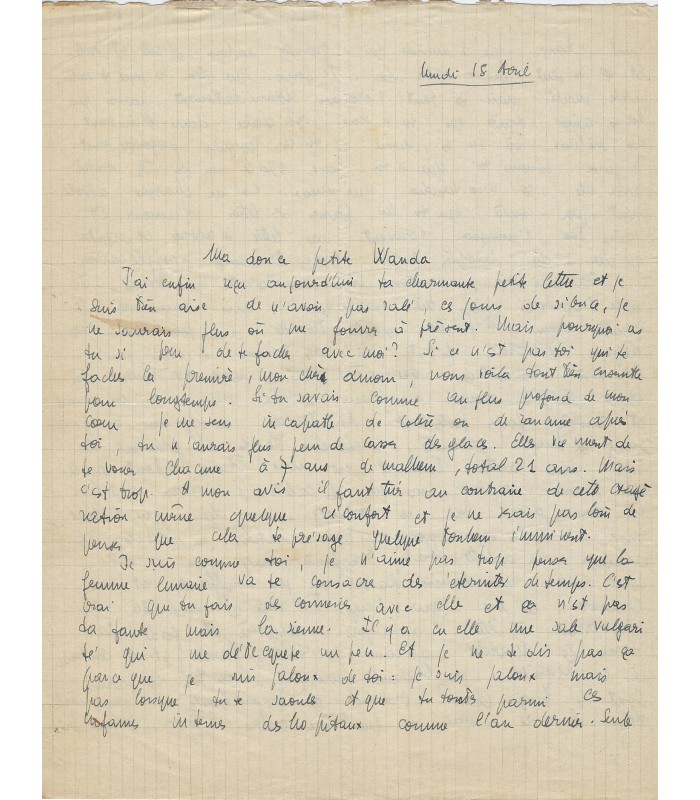 lundi 15 Avril
Ma douce petite Wanda
J'ai enfin reçu aujourd'hui ta charmante petite lettre et je
suis bien aise de n'avoir pas râlé, ces jours de silence, je
ne saurais plus où me fourrer à présent. Mais pourquoi as
tu si peur de te facher avec moi? Si ce n'est pas toi qui te
faches la première, mon cher amour, nous voila tout bien ensemble
pour longtemps. Si tu savais comme au plus profond de mon
coeur je me sens incapable de colère ou de rancune après
toi, tu n'aurais plus peur de casser des glaces. Elles viennent de
te vouer chacune à 7 ans de malheur, total 21 ans. Mais
c'est trop. A mon avis il faut tirer au contraire de cette
nation même quelque réconfort et je ne serais pas loin de
penser que cela te présage quelque bonheur imminent.
Je suis comme toi, je n'aime pas trop penser que la
femme lunaire va te consacrer des éternités de temps. C'est
vrai que tu fais des conneries avec elle et ça n'est pas
ta faute mais la sienne. Il y a en elle une sale vulgari
té qui me débecquete un peu. Et je ne te dis pas ça
parce que je suis jaloux de toi: je suis jaloux mais
pas lorsque tu te saoules et que tu tombes parmi ces
infames internes des hopitaux comme l'an dernier. Seule